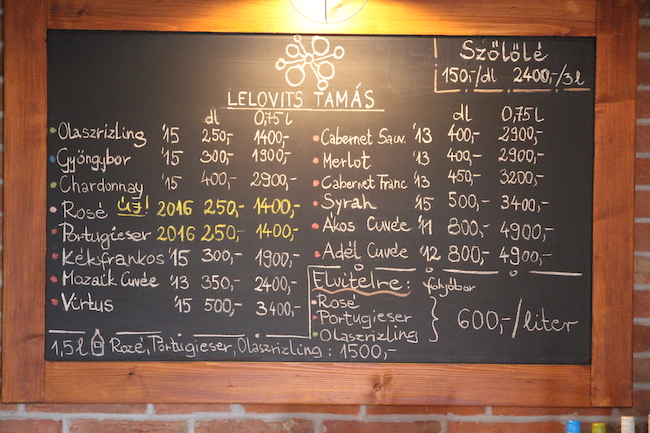 Szőlőlé
150,-/dl 2400,-/3l
LELOVITS TAMÁS
dl 0,75 l
Olaszrizling '15 250,- 1400,-
Gyöngybor '15 300,- 1900,-
Chardonnay '15 400,- 2900,-
Rosé ÚJ! 2016 250,- 1400,-
Portugieser 2016 250,- 1400,-
Kékfrankos '15 300,- 1900,-
Mozaik Cuvée '13 350,- 2400,-
Virtus '15 500,- 3400,-
dl 0,75 l
Cabernet Sauv. '13 400,- 2900,-
Merlot '13 400,- 2900,-
Cabernet Franc '13 450,- 3200,-
Syrah '15 500,- 3400,-
Ákos Cuvée '11 800,- 4900,-
Adél Cuvée '12 800,- 4900,-
Elvitelre: folyóbor
Rosé
Portugieser
Olaszrizling
600,-/liter
1,5 l Rozé, Portugieser, Olaszrizling : 1500,-